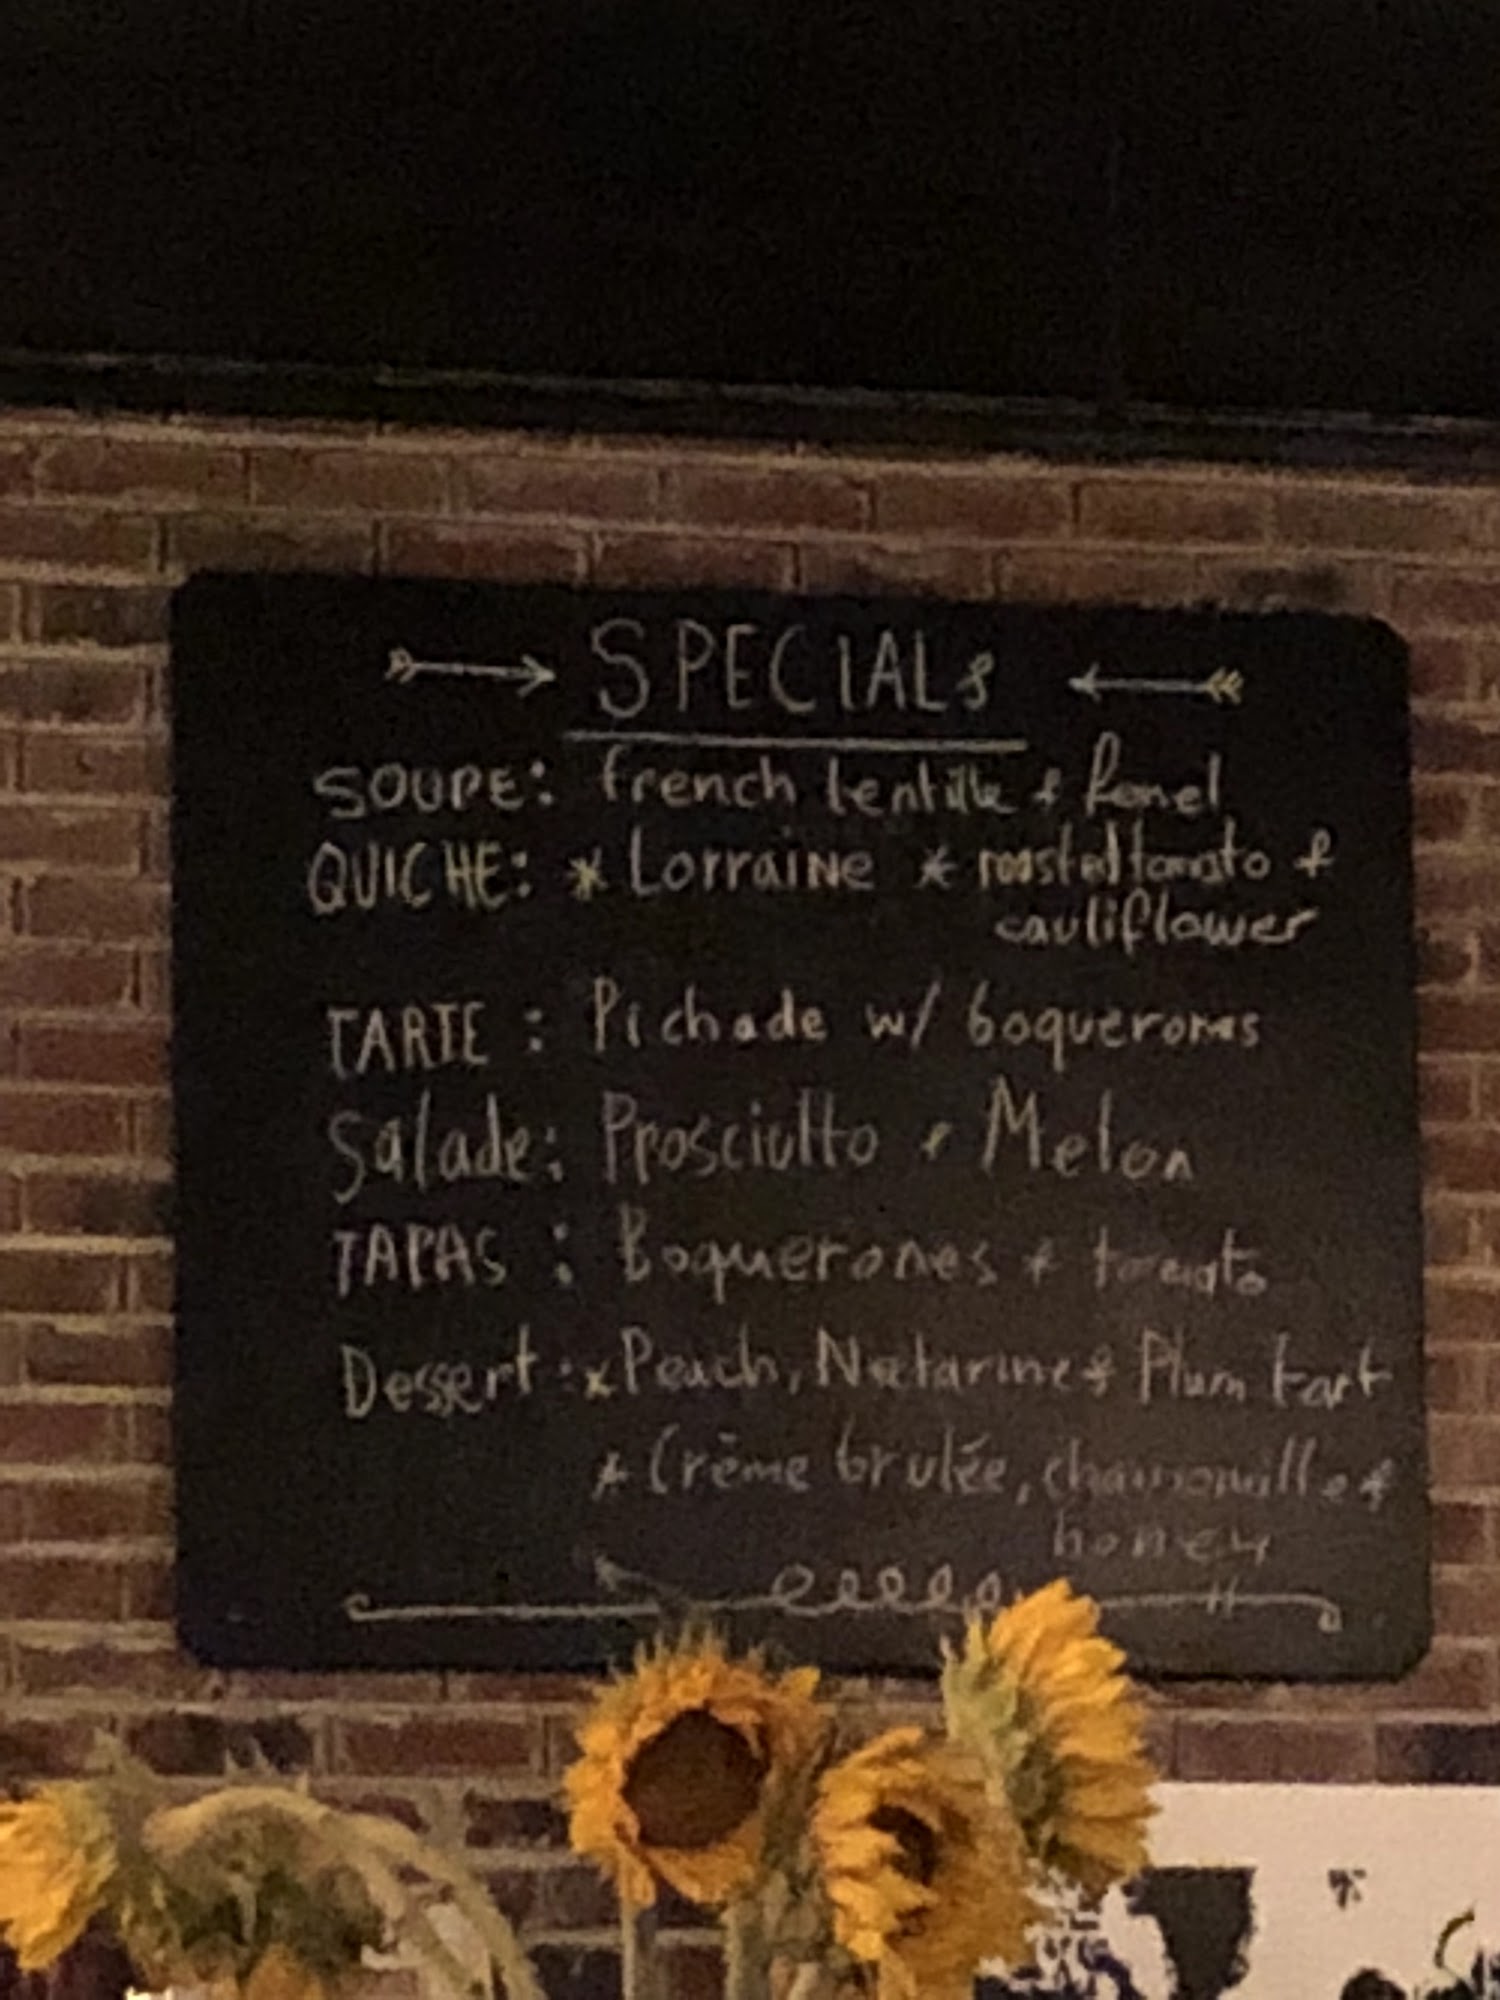 SPECIALs
SOUPE: french lentille & fenel
QUICHE: * Lorraine * roasted tomato &
cauliflower
TARTE : Pichade w/ boquerones
Salade: Prosciutto & Melon
TAPAS : Boquerones & tomato
Dessert: * Peach, Nectarine & Plum tart
* Crème brulée, chamomille &
honey